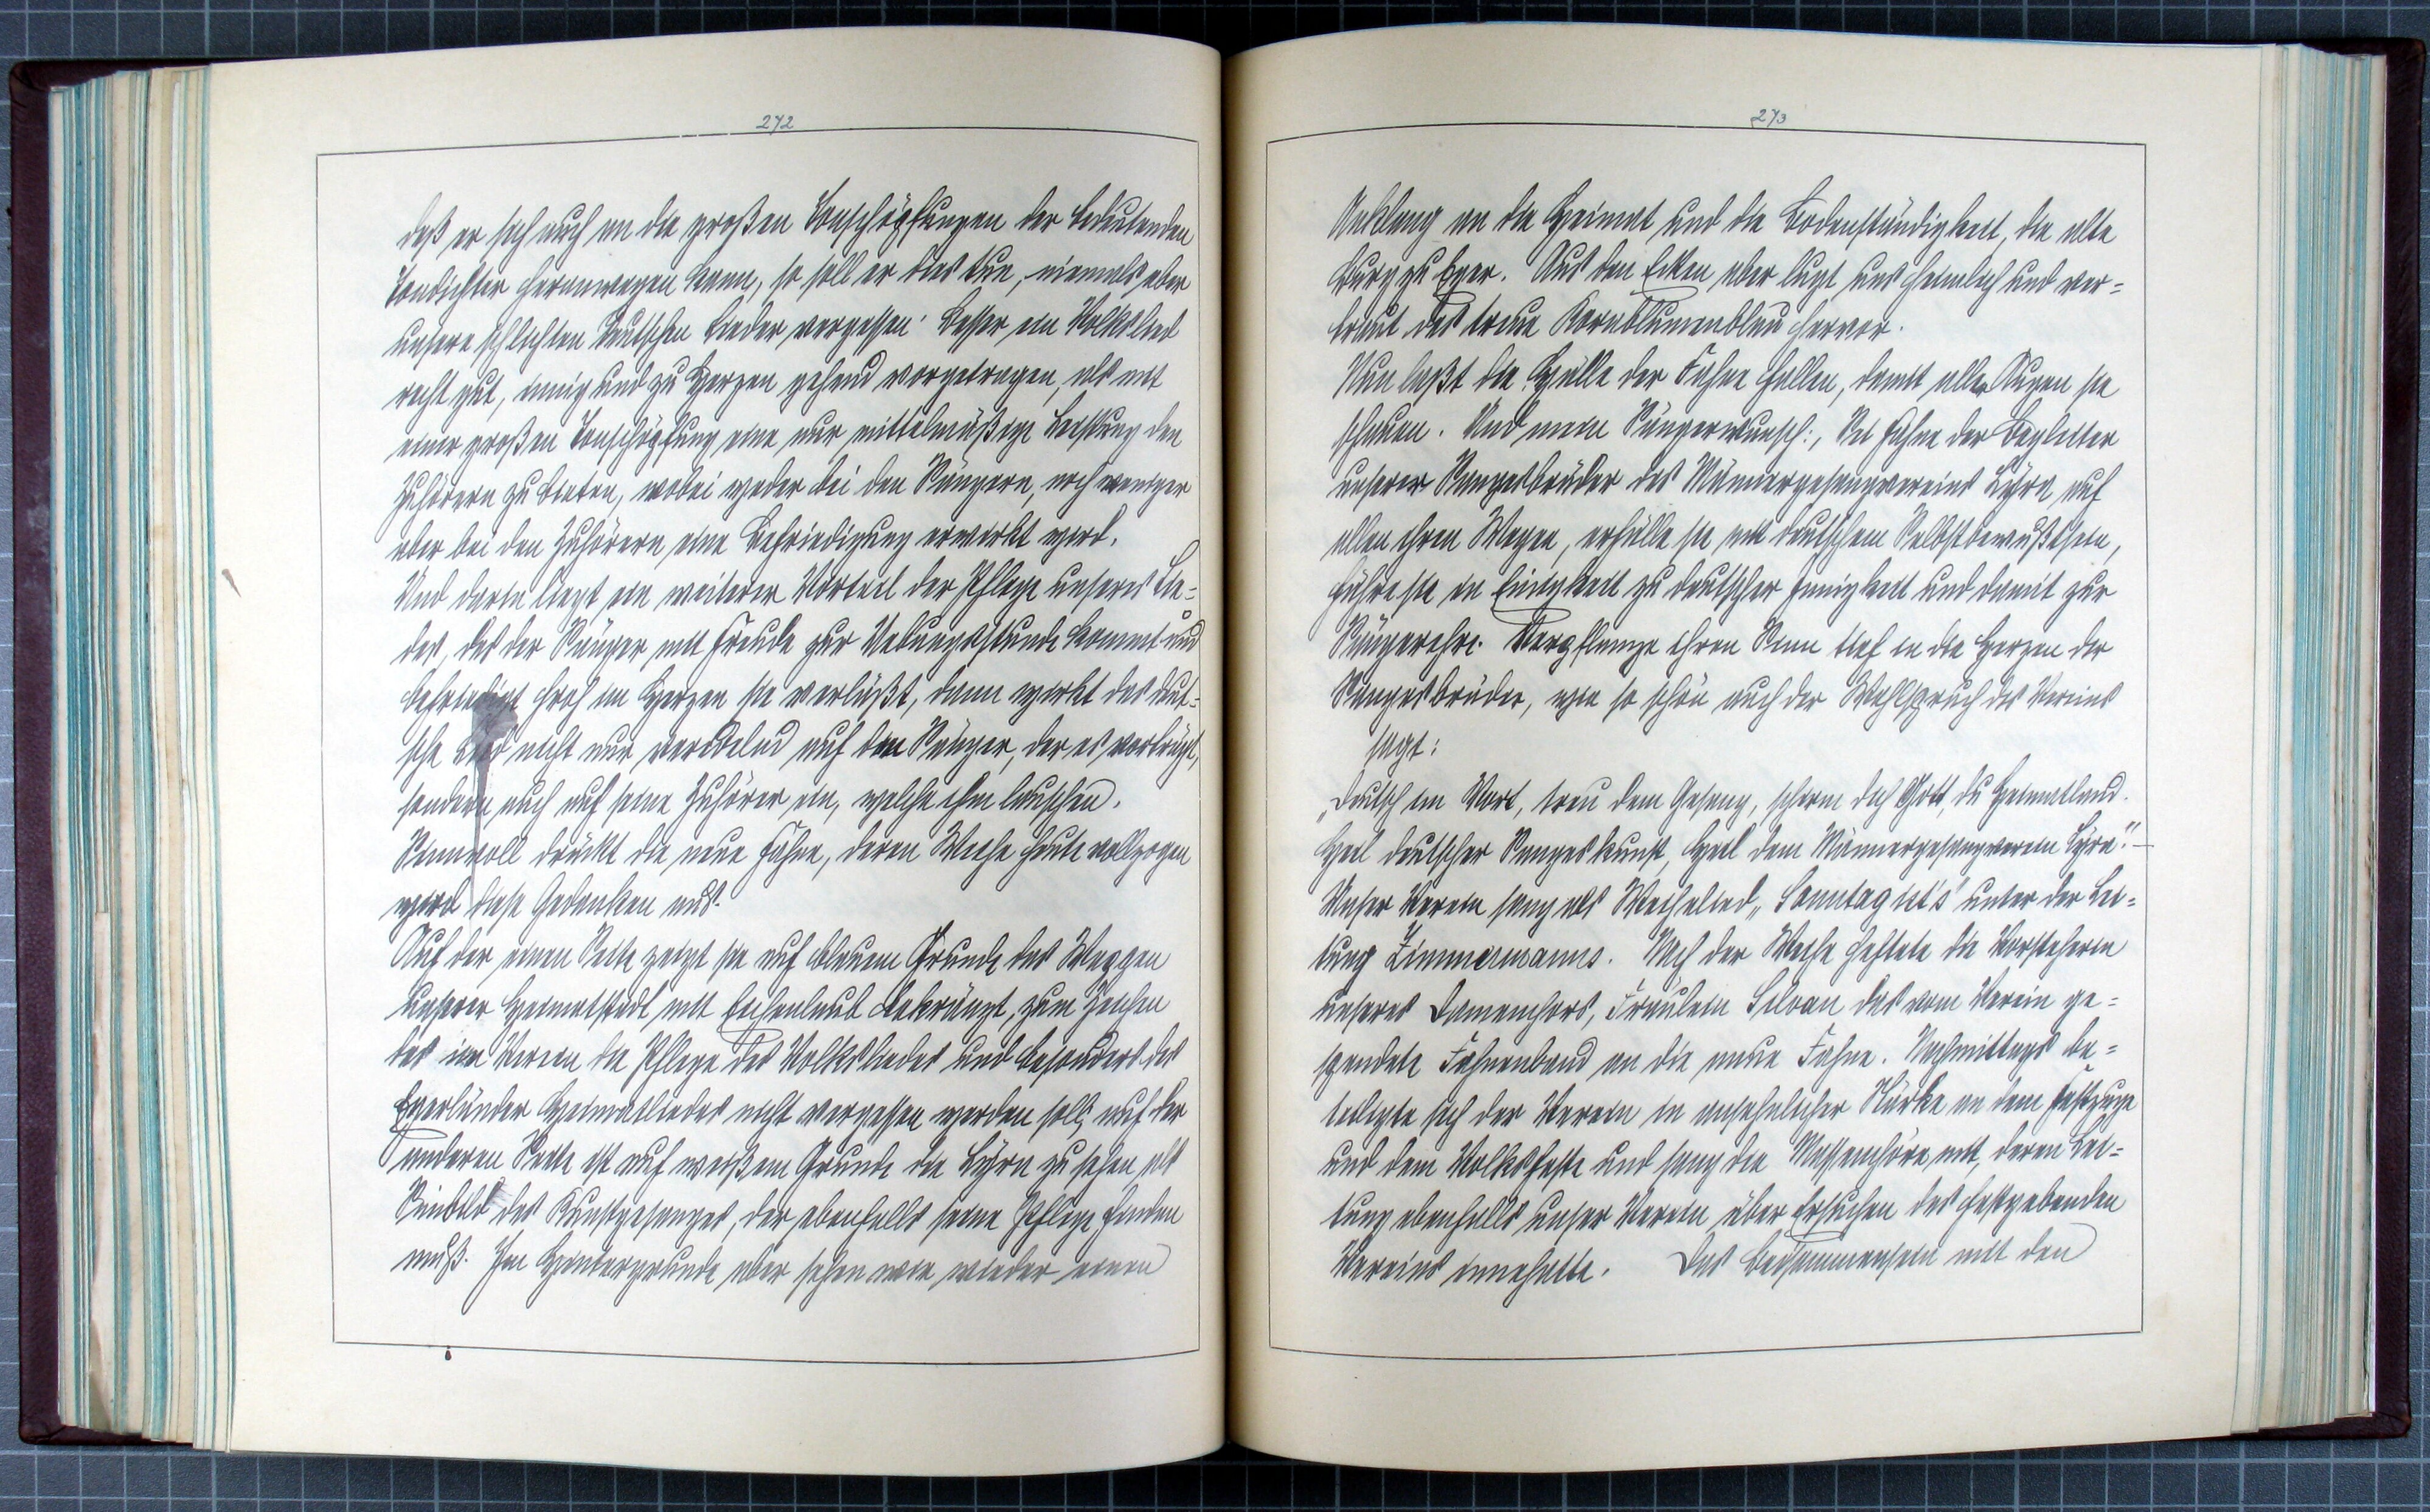 272
daß er sich auch an die großen Tonschöpfungen der bedeutenden
Tondichter heranwagen kann, so soll er dies tun, niemals aber
unsere schlichten deutschen Lieder vergessen. Besser ein Volkslied
recht gut, innig und zu Herzen gehend vorgetragen, als mit
einer großen Tonschöpfung eine nur mittelmäßige Leistung den
Zuhörern zu bieten, wobei weder bei den Sängern, noch weniger
aber bei den Zuhörern, eine Befriedigung erwirkt wird.
Und darin liegt ein weiterer Vorteil der Pflege unseres Lie=
des, daß der Sänger mit Freude zur Uebungsstunde kommt und
befriedigt froh im Herzen sie verläßt, dann wirkt das deut=
sche Lied nicht nur veredelnd auf den Sänger, der es vorträgt,
sondern auch auf seine Zuhörer ein, welche ihm lauschen.
Sinnvoll drückt die neue Fahne, deren Weihe heute vollzogen
wird diese Gedanken aus.
Auf der einen Seite zeigt sie auf blauem Grunde das Wappen
unserer Heimatstadt mit Eichenlaub bekränzt, zum Zeichen
daß im Verein die Pflege des Volksliedes und besonders des
Egerländer Heimatliedes nicht vergessen werden soll, auf der
anderen Seite ist auf weißem Grunde die Lyra zu sehen, als
Sinbild des Kunstgesanges, der ebenfalls seine Pflege finden
muß. Im Hintergrunde aber sehen wir wieder einen
273
Anklang an die Heimat und die Bodenständigkeit, die alte
Burg zu Eger. Aus den Ecken aber lugt uns heimlich und ver=
traut das treue Kornblumenblau hervor.
Nun laßt die Hülle der Fahne fallen, damit aller Augen sie
schauen. Und mein Sängerwunsch: Sei Fahne der Begleiter
unserer Sangesbrüder des Männergesangvereins Lyra auf
allen ihren Wegen, erfülle sie mit deutschem Selbstbewußtsein,
führe sie in Einigkeit zu deutscher Innigkeit und damit zur
Sängerehre. Verpflanze ihren Sinn tief in die Herzen der
Sangesbrüder, wie so schön auch der Wahlspruch des Vereines
sagt:
„Deutsch im Wort, treu dem Gesang, schirm dich Gott, du Heimatland.
Heil deutscher Sangeskunst, Heil dem Männergesangverein Lyra." –
Unser Verein sang als Weihelied „Sonntag ist's" unter der Lei=
tung Zimmermanns. Nach der Weihe heftete die Vorsteherin
unseres Damenchors, Fräulein Silvan das vom Verein ge=
spendete Fahnenband an die neue Fahne. Nachmittags be=
teiligte sich der Verein in ansehnlicher Stärke an dem Festzuge
und dem Volksfeste und sang die Massenchöre mit, deren Lei=
tung ebenfalls unser Verein über Ersuchen des festgebenden
Vereines innehatte. Das Beisammensein mit den